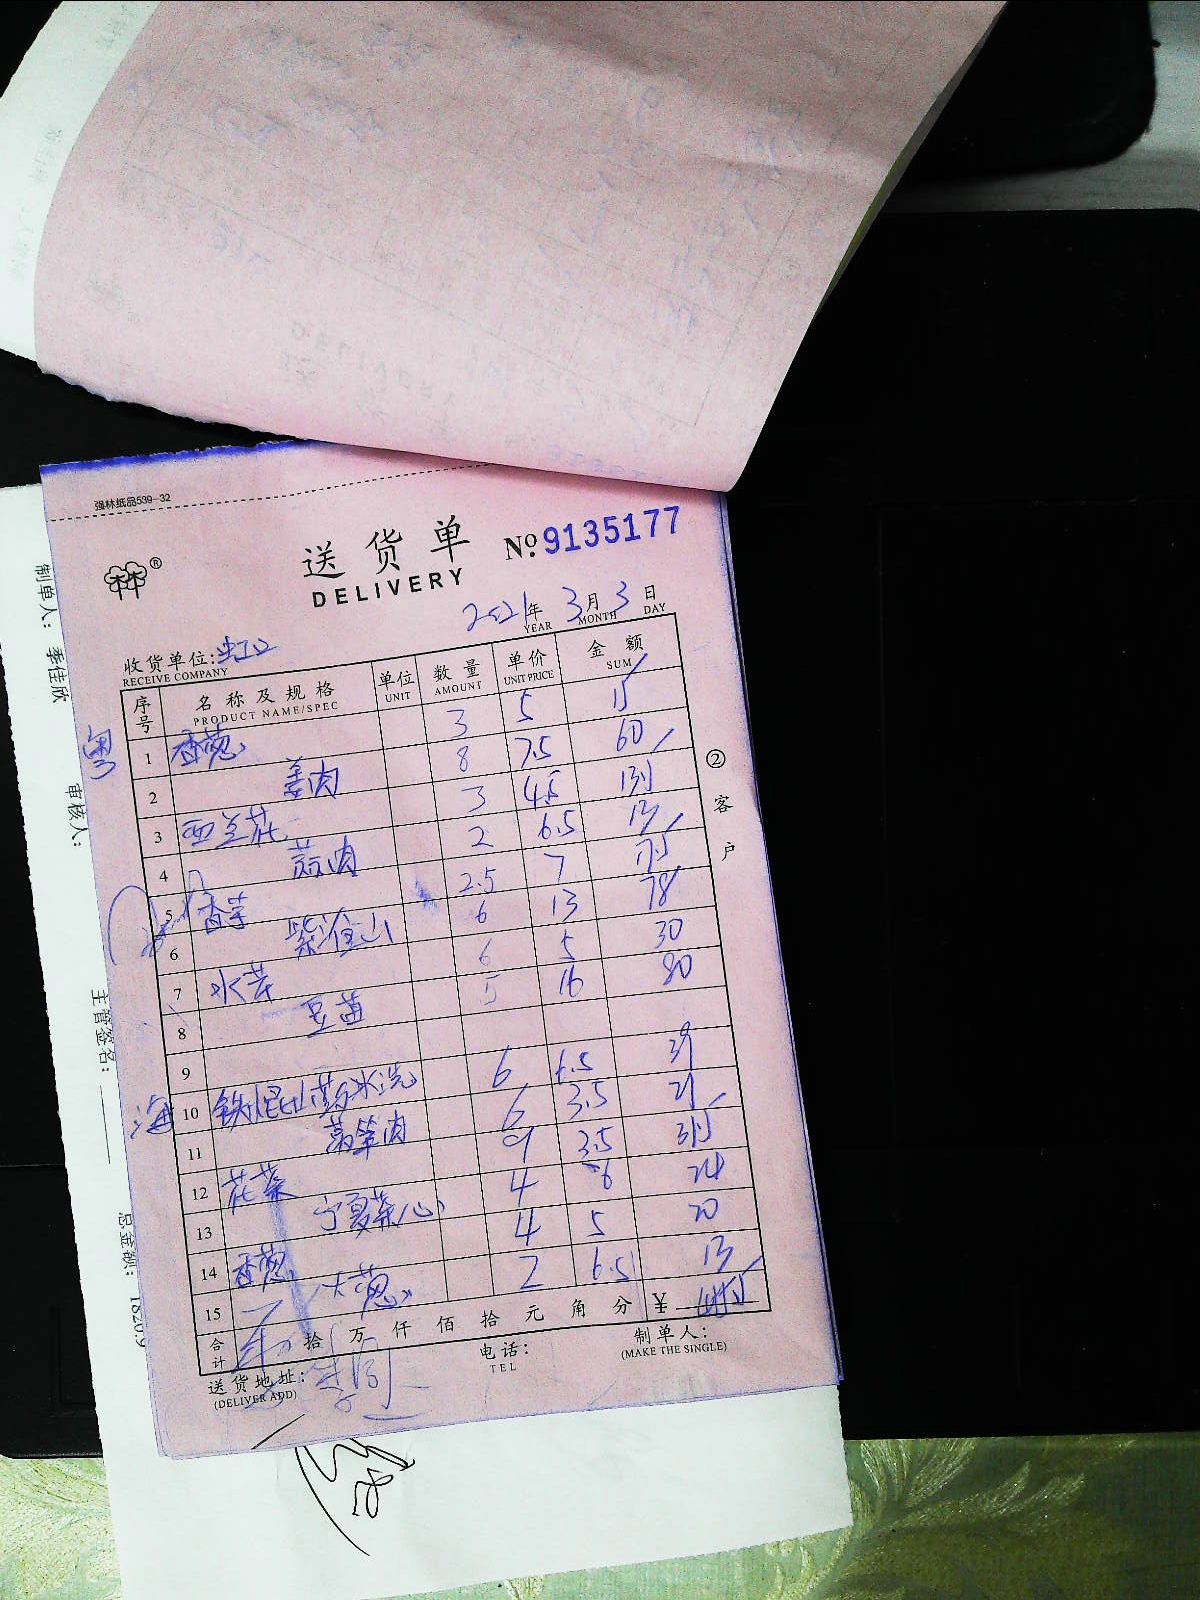 强林纸品539-32
林®
送货单
DELIVERY
No. 9135177
2021年 3月 3日
YEAR MONTH DAY
收货单位: 虹口
RECEIVE COMPANY
序号 名称及规格 单位 数量 单价 金额
PRODUCT NAME/SPEC UNIT AMOUNT UNIT PRICE SUM
粤
1 香葱 3 5 15
2 姜肉 8 7.5 60
3 西兰花 3 4.5 13.5
4 蒜肉 2 6.5 13
5 香芋 2.5 7 17.5
6 紫淮山 6 13 78
7 水芹 6 5 30
8 豆苗 5 16 80
9
海
10 铁棍山药水洗 6 6.5 39
11 莴笋肉 6 3.5 21
12 花菜 9 3.5 31.5
13 宁夏菜心 4 6 24
14 香葱 4 5 20
15 大葱 2 6.5 13
合计 拾 万 仟 佰 拾 元 角 分 ¥
送货地址:
(DELIVER ADD)
电话:
TEL
制单人:
(MAKE THE SINGLE)
②客户
制单人: 季佳欣
审核人:
主管签名:
总金额: 1820.9